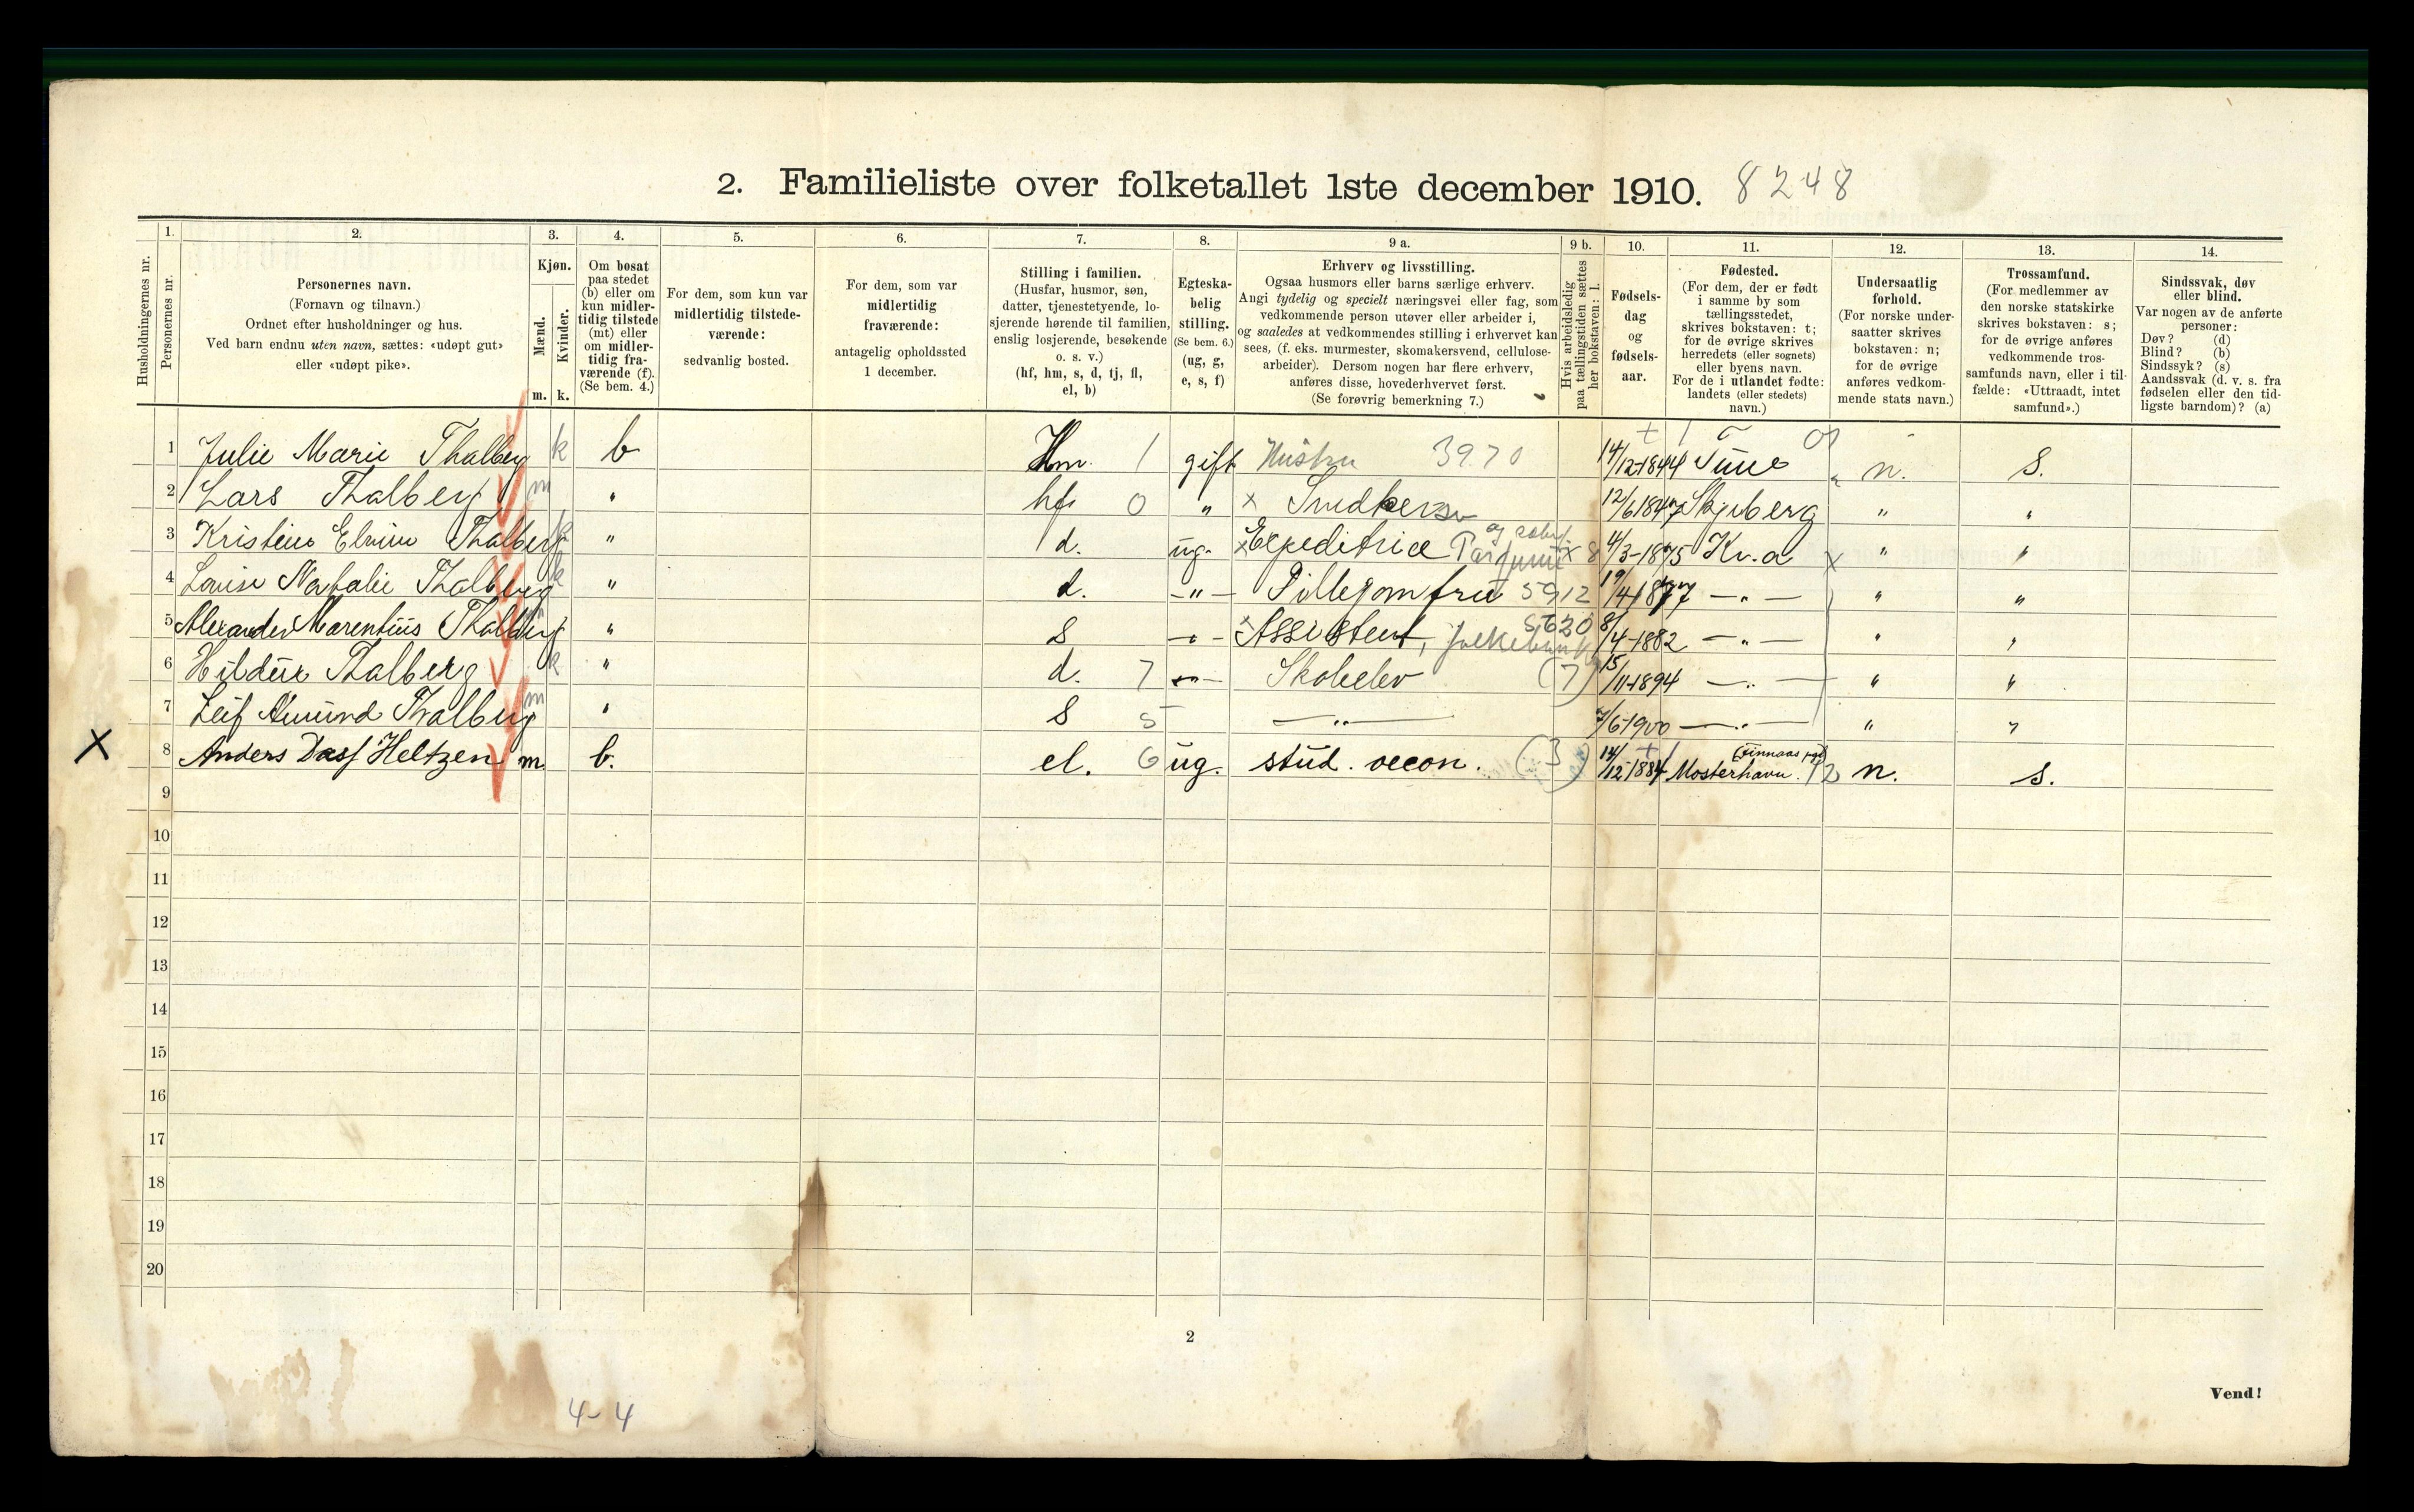 2. Familieliste over folketallet 1ste december 1910. 8248
Husholdningernes nr.
1. Personernes nr.
2. Personernes navn.
(Fornavn og tilnavn.)
Ordnet efter husholdninger og hus.
Ved barn endnu uten navn, sættes: «udøpt gut»
eller «udøpt pike».
3. Kjøn.
Mænd. Kvinder.
m. k.
4. Om bosat
paa stedet
(b) eller om
kun midler-
tidig tilstede
(mt) eller
om midler-
tidig fra-
værende (f).
(Se bem. 4.)
5. For dem, som kun var
midlertidig tilstede-
værende:
sedvanlig bosted.
6. For dem, som var
midlertidig
fraværende:
antagelig opholdssted
1 december.
7. Stilling i familien.
(Husfar, husmor, søn,
datter, tjenestetyende, lo-
sjerende hørende til familien,
enslig losjerende, besøkende
o. s. v.)
(hf, hm, s, d, tj, fl,
el, b)
8. Egteska-
belig
stilling.
(Se bem. 6.)
(ug, g,
e, s, f)
9 a. Erhverv og livsstilling.
Ogsaa husmors eller barns særlige erhverv.
Angi tydelig og specielt næringsvei eller fag, som
vedkommende person utøver eller arbeider i,
og saaledes at vedkommendes stilling i erhvervet kan
sees, (f. eks. murmester, skomakersvend, cellulose-
arbeider). Dersom nogen har flere erhverv,
anføres disse, hovederhvervet først.
(Se forøvrig bemerkning 7.)
9 b. Hvis arbeidsledig
paa tællingstiden sættes
her bokstaven: l.
10. Fødsels-
dag
og
fødsels-
aar.
11. Fødested.
(For dem, der er født
i samme by som
tællingsstedet,
skrives bokstaven: t;
for de øvrige skrives
herredets (eller sognets)
eller byens navn.
For de i utlandet fødte:
landets (eller stedets)
navn.)
12. Undersaatlig
forhold.
(For norske under-
saatter skrives
bokstaven: n;
for de øvrige
anføres vedkom-
mende stats navn.)
13. Trossamfund.
(For medlemmer av
den norske statskirke
skrives bokstaven: s;
for de øvrige anføres
vedkommende tros-
samfunds navn, eller i til-
fælde: «Uttraadt, intet
samfund».)
14. Sindssvak, døv
eller blind.
Var nogen av de anførte
personer:
Døv? (d)
Blind? (b)
Sindssyk? (s)
Aandssvak (d. v. s. fra
fødselen eller den tid-
ligste barndom)? (a)
1 Julie Marie Thalberg k b Hm. 1 gift Hustru 3970 14/12-1844 Tune n. S.
2 Lars Thalberg m " hf. 0 " x Snedker 12/6 1847 Skjeberg " "
3 Kristine Elvine Thalberg k " d. ug. x Expeditrice Parfumi x 8 4/3-1875 Kr.a x " "
4 Lovise Nathalie Thalberg k " d. -"- Pillejomfru 5912 19/4 1877 -"- " "
5 Alexander Marentius Thalberg " S -"- x Assistent, folkebank 5620 8/4-1882 -"- " "
6 Hildur Thalberg k " d. 7 -"- Skoleelev (7) 15/11-1894 -"- " "
7 Leif Amund Thalberg m " S 5 -"- 7/6-1900 -"- " "
x 8 Anders Dass Heltzen m b. el. 6 ug. stud. oecon. (3) 14/12-1884 Mosterhavn. (Finnaas pgd) 12 n. s.
9
10
11
12
13
14
15
16
17
18
19
20
2
4-4
Vend!